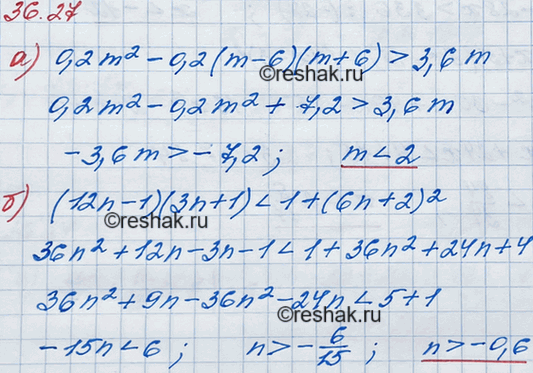 36.27
а) 0,2m² - 0,2(m-6)(m+6) > 3,6m
©reshak.ru
0,2m² - 0,2m² + 7,2 > 3,6m
-3,6m > -7,2; m < 2
б) (12n-1)(3n+1) < 1 + (6n+2)²
©reshak.ru
36n² + 12n - 3n - 1 < 1 + 36n² + 24n + 4
36n² + 9n - 36n² - 24n < 5 + 1
©reshak.ru
-15n < 6; n > -6/15; n > -0,6